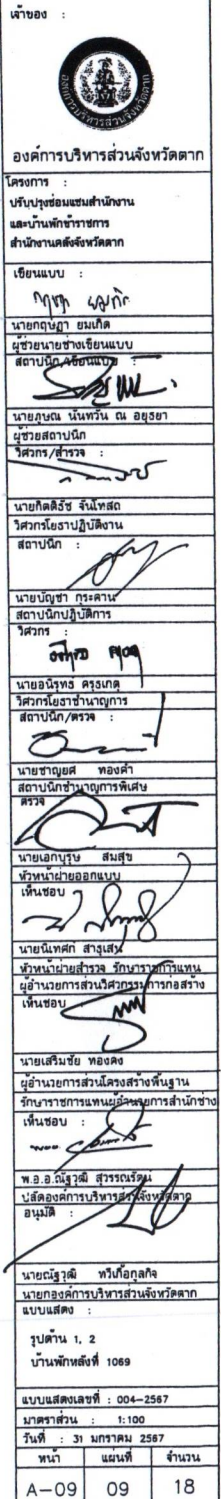 เจ้าของ :
องค์การบริหารส่วนจังหวัดตาก
องค์การบริหารส่วนจังหวัดตาก
โครงการ :
ปรับปรุงซ่อมแซมสำนักงาน
และบ้านพักข้าราชการ
สำนักงานคลังจังหวัดตาก
เขียนแบบ :
นายกฤษฎา ยมเกิด
ผู้ช่วยนายช่างเขียนแบบ
สถาปนิก/เขียนแบบ :
นายภูษณ นันทวัน ณ อยุธยา
ผู้ช่วยสถาปนิก
วิศวกร/สำรวจ :
นายกิตติธัช จันโทสถ
วิศวกรโยธาปฏิบัติงาน
สถาปนิก :
นายบัญชา กุระคาน
สถาปนิกปฏิบัติการ
วิศวกร :
นายอนิรุทธ ครุธเกตุ
วิศวกรโยธาชำนาญการ
สถาปนิก/ตรวจ :
นายชาญยศ ทองคำ
สถาปนิกชำนาญการพิเศษ
ตรวจ
นายเอกบุรุษ สมสุข
หัวหน้าฝ่ายออกแบบ
เห็นชอบ
นายนิเทศก์ สาธุเสน
หัวหน้าฝ่ายสำรวจ รักษาราชการแทน
ผู้อำนวยการส่วนวิศวกรรมการก่อสร้าง
เห็นชอบ
นายเสริมชัย ทองคง
ผู้อำนวยการส่วนโครงสร้างพื้นฐาน
รักษาราชการแทนผู้อำนวยการสำนักช่าง
เห็นชอบ :
พ.อ.อ.ณัฐวุฒิ สุวรรณรัตน์
ปลัดองค์การบริหารส่วนจังหวัดตาก
อนุมัติ :
นายณัฐวุฒิ ทวีเกื้อกูลกิจ
นายกองค์การบริหารส่วนจังหวัดตาก
แบบแสดง :
รูปด้าน 1, 2
บ้านพักหลังที่ 1069
แบบแสดงเลขที่ : 004-2567
มาตราส่วน : 1:100
วันที่ : 31 มกราคม 2567
หน้า แผ่นที่ จำนวน
A-09 09 18